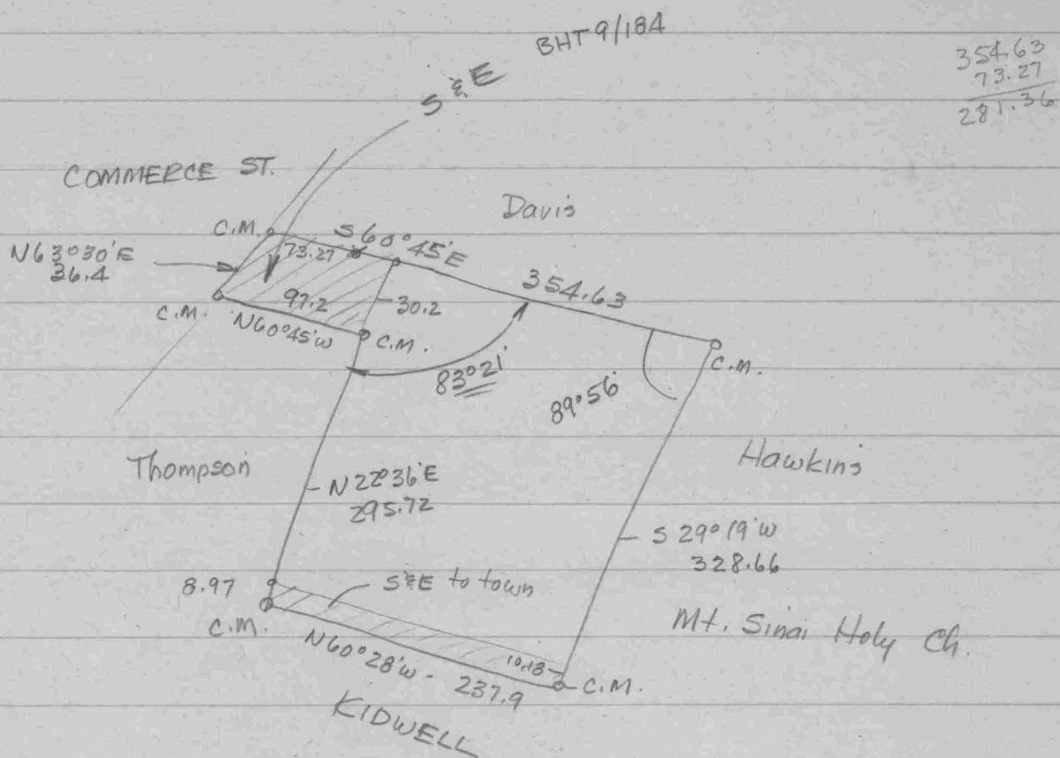 BHT 9/184
S & E
354.63
73.27
281.36
COMMERCE ST.
Davis
C.M.
S 60°45'E
N63°30'E
36.4
73.27
354.63
97.2
30.2
C.M.
N60°45'W
C.M.
83°21'
C.M.
89°56'
Thompson
Hawkins
N 22°36'E
295.72
S 29°19'W
328.66
8.97
S&E to town
C.M.
Mt. Sinai Holy Ch.
N60°28'W - 237.9
10.18
C.M.
KIDWELL